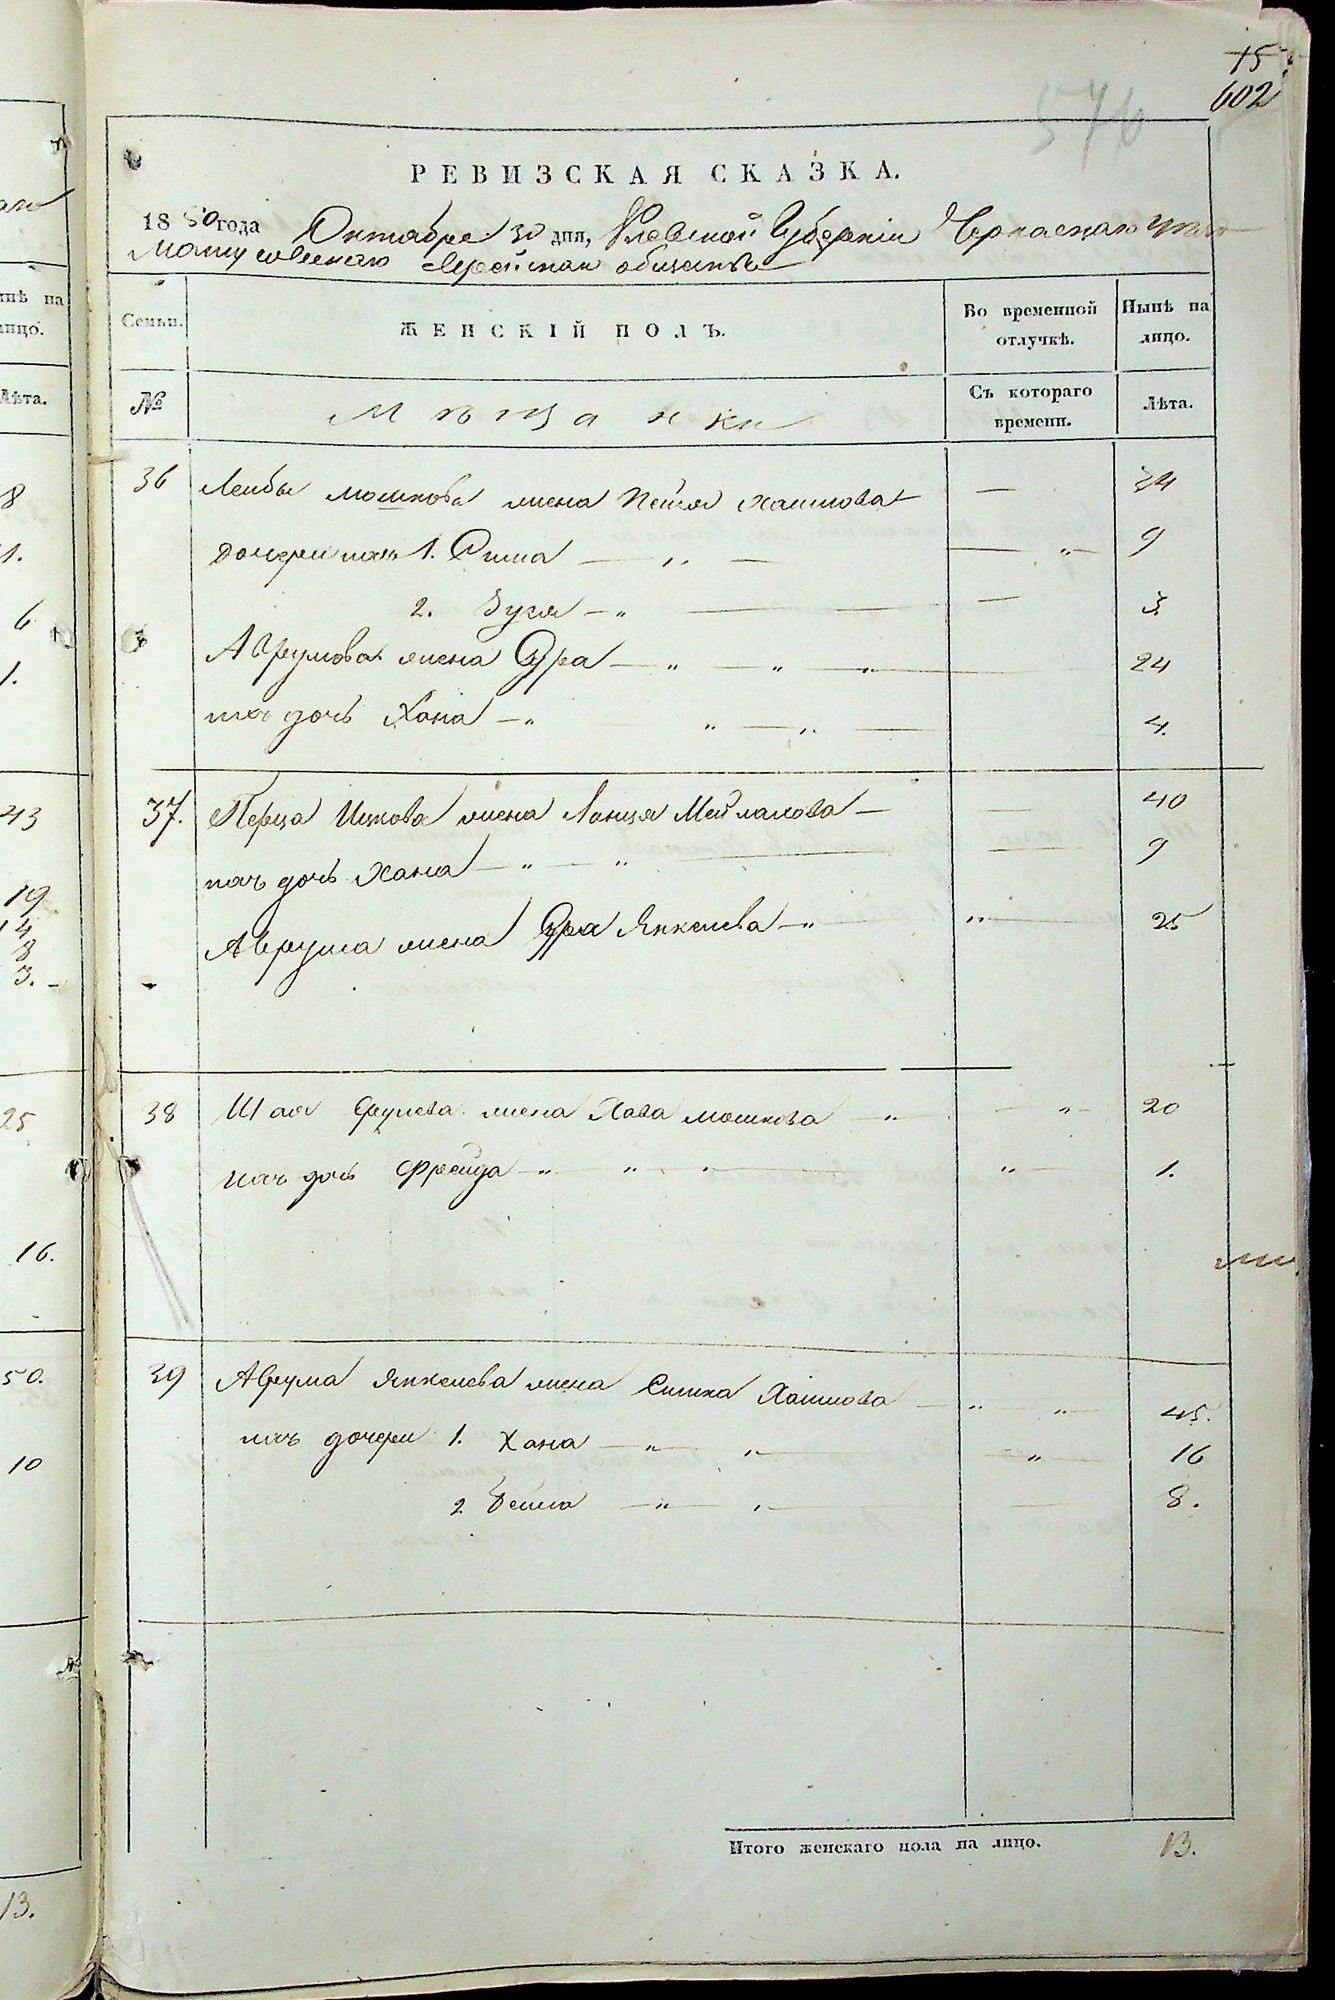 15
602
576
РЕВИЗСКАЯ СКАЗКА.
1850 года Октября 30 дня, Киевской Губерніи Черкаскаго уезда
Мошуровскаго Еврейскаго общества
Семьи. ЖЕНСКІЙ ПОЛЪ. Во временной отлучкѣ. Нынѣ на лицо.
№ Мѣщанки Съ котораго времени. Лѣта.
36 Лейбы Мошкова жена Пейся Хаимова — 34
дочери ихъ 1. Сима — „ — „ 9
2. — „ — 3.
Аврумова жена Сура — „ — „ — „ 24
ихъ дочь Хана — „ „ — „ — 4.
37. Перца Ицкова жена Меймахова — — 40
ихъ дочь Хана — „ — „ — 9
Аврума жена Сура Янкелева — „ „ — 25
38 Шая жена Хава Мошкова „ — „ — 20
ихъ дочь Фрейда — „ — „ — „ — 1.
39 Аврума Янкелева жена Симка Хаимова — „ „ 45.
ихъ дочери 1. Хана — „ — „ — „ 16
2 — „ — „ — 8.
Итого женскаго пола на лицо. 13.
ынѣ на
ицо.
Лѣта.
8
1.
6
1.
43
19
14
8
3.
25
16.
50.
10
13.